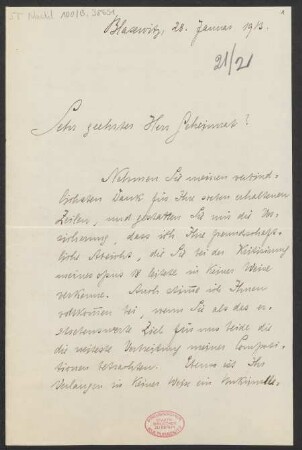 Blasewitz, 28. Januar 1913.
21/21
Sehr geehrter Herr Geheimrat!
Nehmen Sie meinen verbind-
lichsten Dank für Ihre soeben erhaltenen
Zeilen, und gestatten Sie mir die Ver-
sicherung, dass ich Ihre freundschaft-
liche Absicht, die Sie bei der
meines opus in keiner Weise
verkenne. Auch stimme ich Ihnen
vollkommen bei, wenn Sie als das er-
strebenswerte Ziel für uns beide die
die weiteste Verbreitung meiner Composi-
tionen betrachten. Ebenso ist Ihr
Verlangen in keiner Weise ein